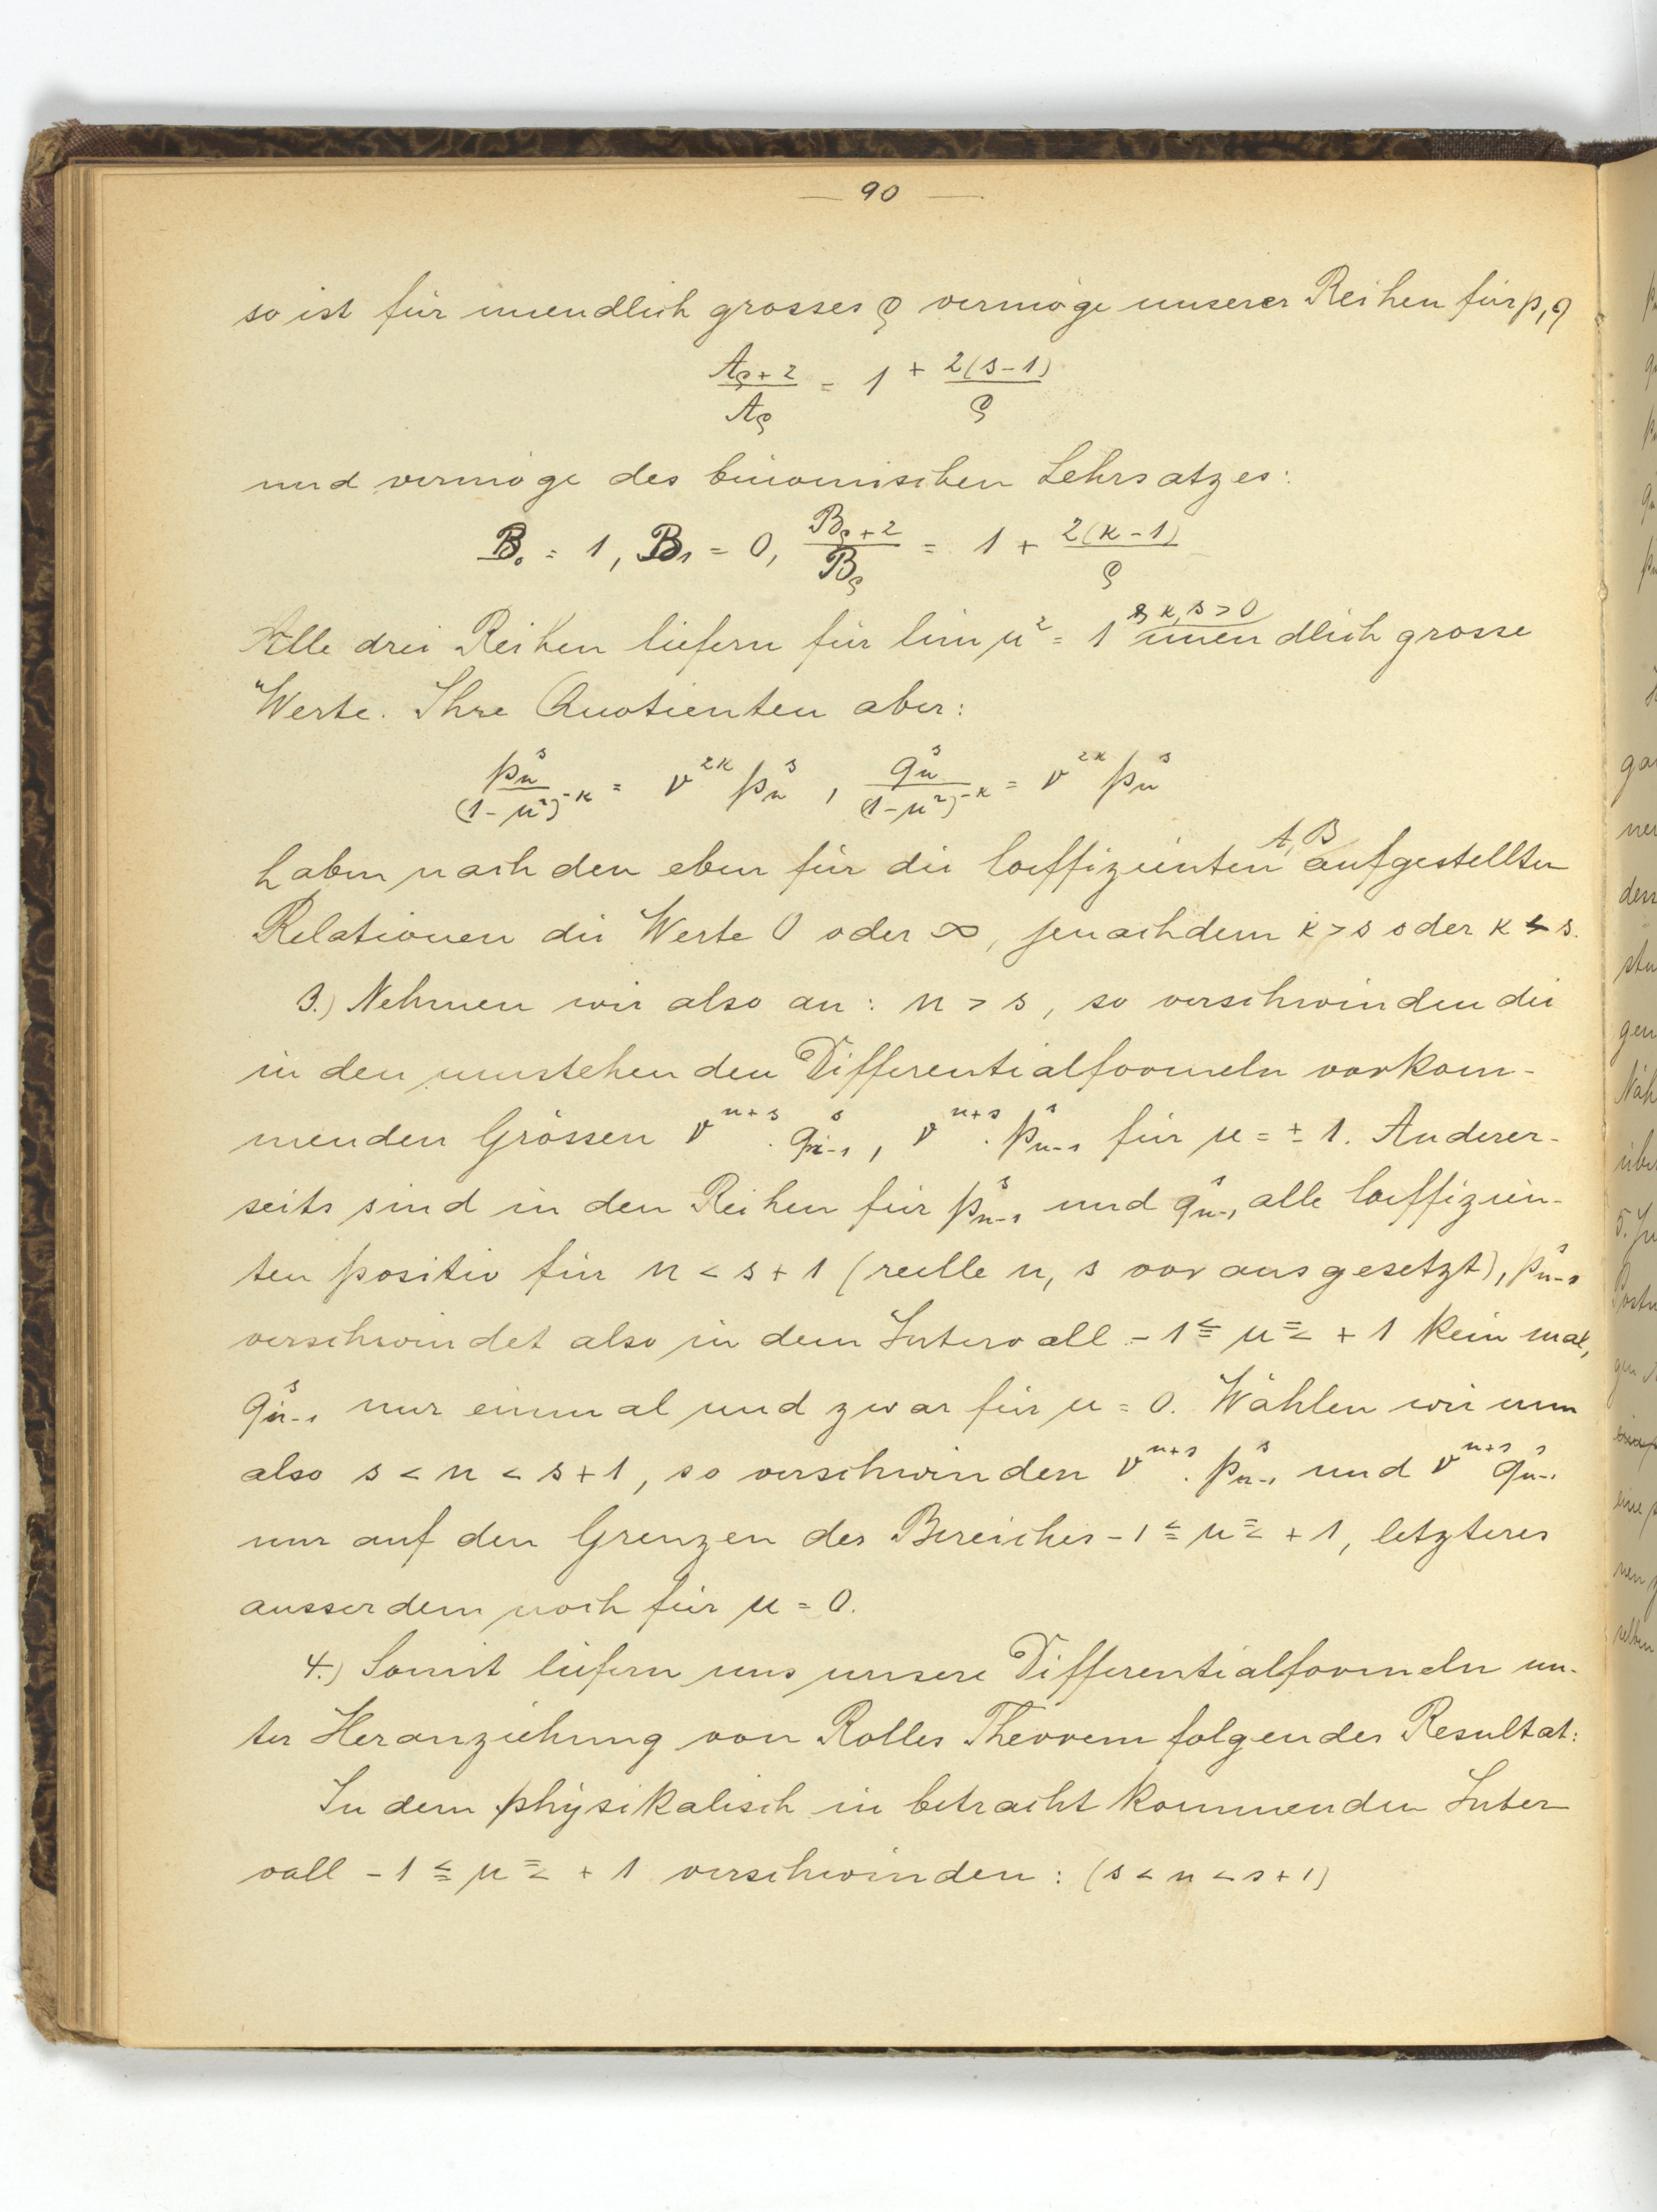 — 90 —
so ist für unendlich grosses ϱ vermöge unserer Reihen für p, q
A_{ϱ+2}/A_ϱ = 1 + 2(s-1)/ϱ
und vermöge des binomischen Lehrsatzes:
B_0 = 1, B_1 = 0, B_{ϱ+2}/B_ϱ = 1 + 2(κ-1)/ϱ
κ, s > 0
Alle drei Reihen liefern für lim μ² = 1 unendlich grosse
Werte. Ihre Quotienten aber:
p_n^s/(1-μ²)^{-κ} = ν^{2κ} p_n^s, q_n^s/(1-μ²)^{-κ} = ν^{2κ} p_n^s
A, B
haben nach den eben für die Coeffizienten aufgestellten
Relationen die Werte 0 oder ∞, jenachdem κ > s oder κ < s.
3.) Nehmen wir also an: n > s, so verschwinden die
in den umstehenden Differentialformeln vorkom-
menden Grössen ν^{n+s} . q_{n-1}^s, ν^{n+s} . p_{n-1}^s für μ = ± 1. Anderer-
seits sind in den Reihen für p_{n-1}^s und q_{n-1}^s alle Coeffizien-
ten positiv für n < s + 1 (reelle n, s vorausgesetzt), p_{n-1}^s
verschwindet also in dem Intervall - 1 ≦ μ ≦ + 1 kein mal,
q_{n-1}^s nur einmal und zwar für μ = 0. Wählen wir nun
also s < n < s + 1, so verschwinden ν^{n+s} . p_{n-1}^s und ν^{n+s} q_{n-1}^s
nur auf den Grenzen des Bereiches - 1 ≦ μ ≦ + 1, letzteres
ausserdem noch für μ = 0.
4.) Somit liefern uns unsere Differentialformeln un-
ter Heranziehung von Rolles Theorem folgendes Resultat:
In dem physikalisch in betracht kommenden Inter
vall - 1 ≦ μ ≦ + 1 verschwinden: (s < n < s + 1)